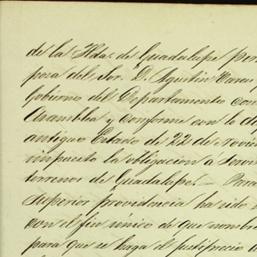 de la Hda. de Guadalupe per
posa del Sor. D. Agustin
Gobierno del Departamento con
Asamblea y conforme con lo di
antiguo Estado de 22 de Novie
impuesto la obligacion á
terrenos de Guadalupe.
superior providencia ha sido
con el fin único de que nombr
para que se haga el justiprecio